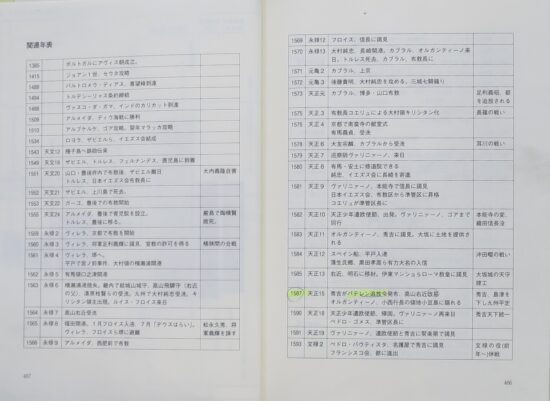 関連年表
1385 ポルトガルにアヴィス朝成立。
1415 ジョアン1世、セウタ攻略
1488 バルトロメウ・ディアス、喜望峰到達
1494 トルデシーリャス条約締結
1498 ヴァスコ・ダ・ガマ、インドのカリカット到達
1509 アルメイダ、ディウ海戦に勝利
1510 アルブケルケ、ゴア攻略、翌年マラッカ攻略
1534 ロヨラ、ザビエルら、イエズス会結成
1543 天文12 種子島へ鉄砲伝来
1549 天文18 ザビエル、トルレス、フェルナンデス、鹿児島に到着
1551 天文20 山口・豊後府内で布教後、ザビエル離日 大内義隆自害
トルレス、日本イエズス会布教長に
1552 天文21 ザビエル、上川島で死去。
1553 天文22 ガーゴ、豊後での布教開始
1555 天文24 アルメイダ、豊後で育児院を設立。 厳島で陶晴賢
トルレス、豊後に移る。 敗死。
1559 永禄2 ヴィレラ、京都で布教を開始
1560 永禄3 ヴィレラ、将軍足利義輝に謁見、宣教の許可を得る 桶狭間の合戦
1561 永禄4 ヴィレラ、堺へ。
1562 永禄5 有馬領口之津開港
1564 永禄7 高山右近受洗
1565 永禄8 福田開港、1月フロイス入洛、7月「デウスはらい」 松永久秀、将
ヴィレラ、フロイスら堺に避難 軍義輝を誅す
1566 永禄9 アルメイダ、西肥前で布教
407
1569 永禄12 フロイス、信長に謁見
1570 永禄13 大村純忠、長崎開港、カブラル、オルガンティーノ来
日、トルレス死去、カブラル、布教長に
1571 元亀2 カブラル、上京
1572 元亀3 後藤貴明、大村純忠を攻める、三城七騎籠り
1573 天正元 カブラル、博多・山口布教 足利義昭、都
を追放される
1575 天正3 布教長コエリュによる大村領キリシタン化 長篠の戦い
1576 天正4 京都で南蛮寺の献堂式
有馬義貞、受洗
1578 天正6 大友宗麟、カブラルから受洗 耳川の戦い
1579 天正7 巡察師ヴァリニャーノ、来日
1580 天正8 有馬・安土に修道院できる
純忠、イエズス会に長崎を寄進
1581 天正9 ヴァリニャーノ、本能寺で信長に謁見
日本イエズス会、布教区から準管区に昇格
コエリュが準管区長に
1582 天正10 天正少年遣欧使節、出発。ヴァリニャーノ、ゴアまで 本能寺の変、
同行 織田信長没
1583 天正11 オルガンティーノ、秀吉に謁見。大坂に土地を提供さ
れる
1584 天正12 スペイン船、平戸入港 沖田畷の戦い
蒲生氏郷、黒田孝高ら有力大名の入信
1585 天正13 右近、明石に移封。伊東マンショらローマ教皇に謁見 大坂城の天守
竣工
1587 天正15 秀吉がバテレン追放令発布、高山右近改易 秀吉、島津を
オルガンティーノ、小西行長の領地小豆島に隠れる 下し九州平定
1590 天正18 天正少年遣欧使節、帰国。ヴァリニャーノ再来日 秀吉天下統一
ペドロ・ゴメス、準管区長に
1591 天正19 ヴァリニャーノ、遣欧使節と秀吉に聚楽第で謁見
1593 文禄2 ペドロ・バウティスタ、名護屋で秀吉に謁見 文禄の役(前
フランシスコ会、都に進出 年〜)休戦
406